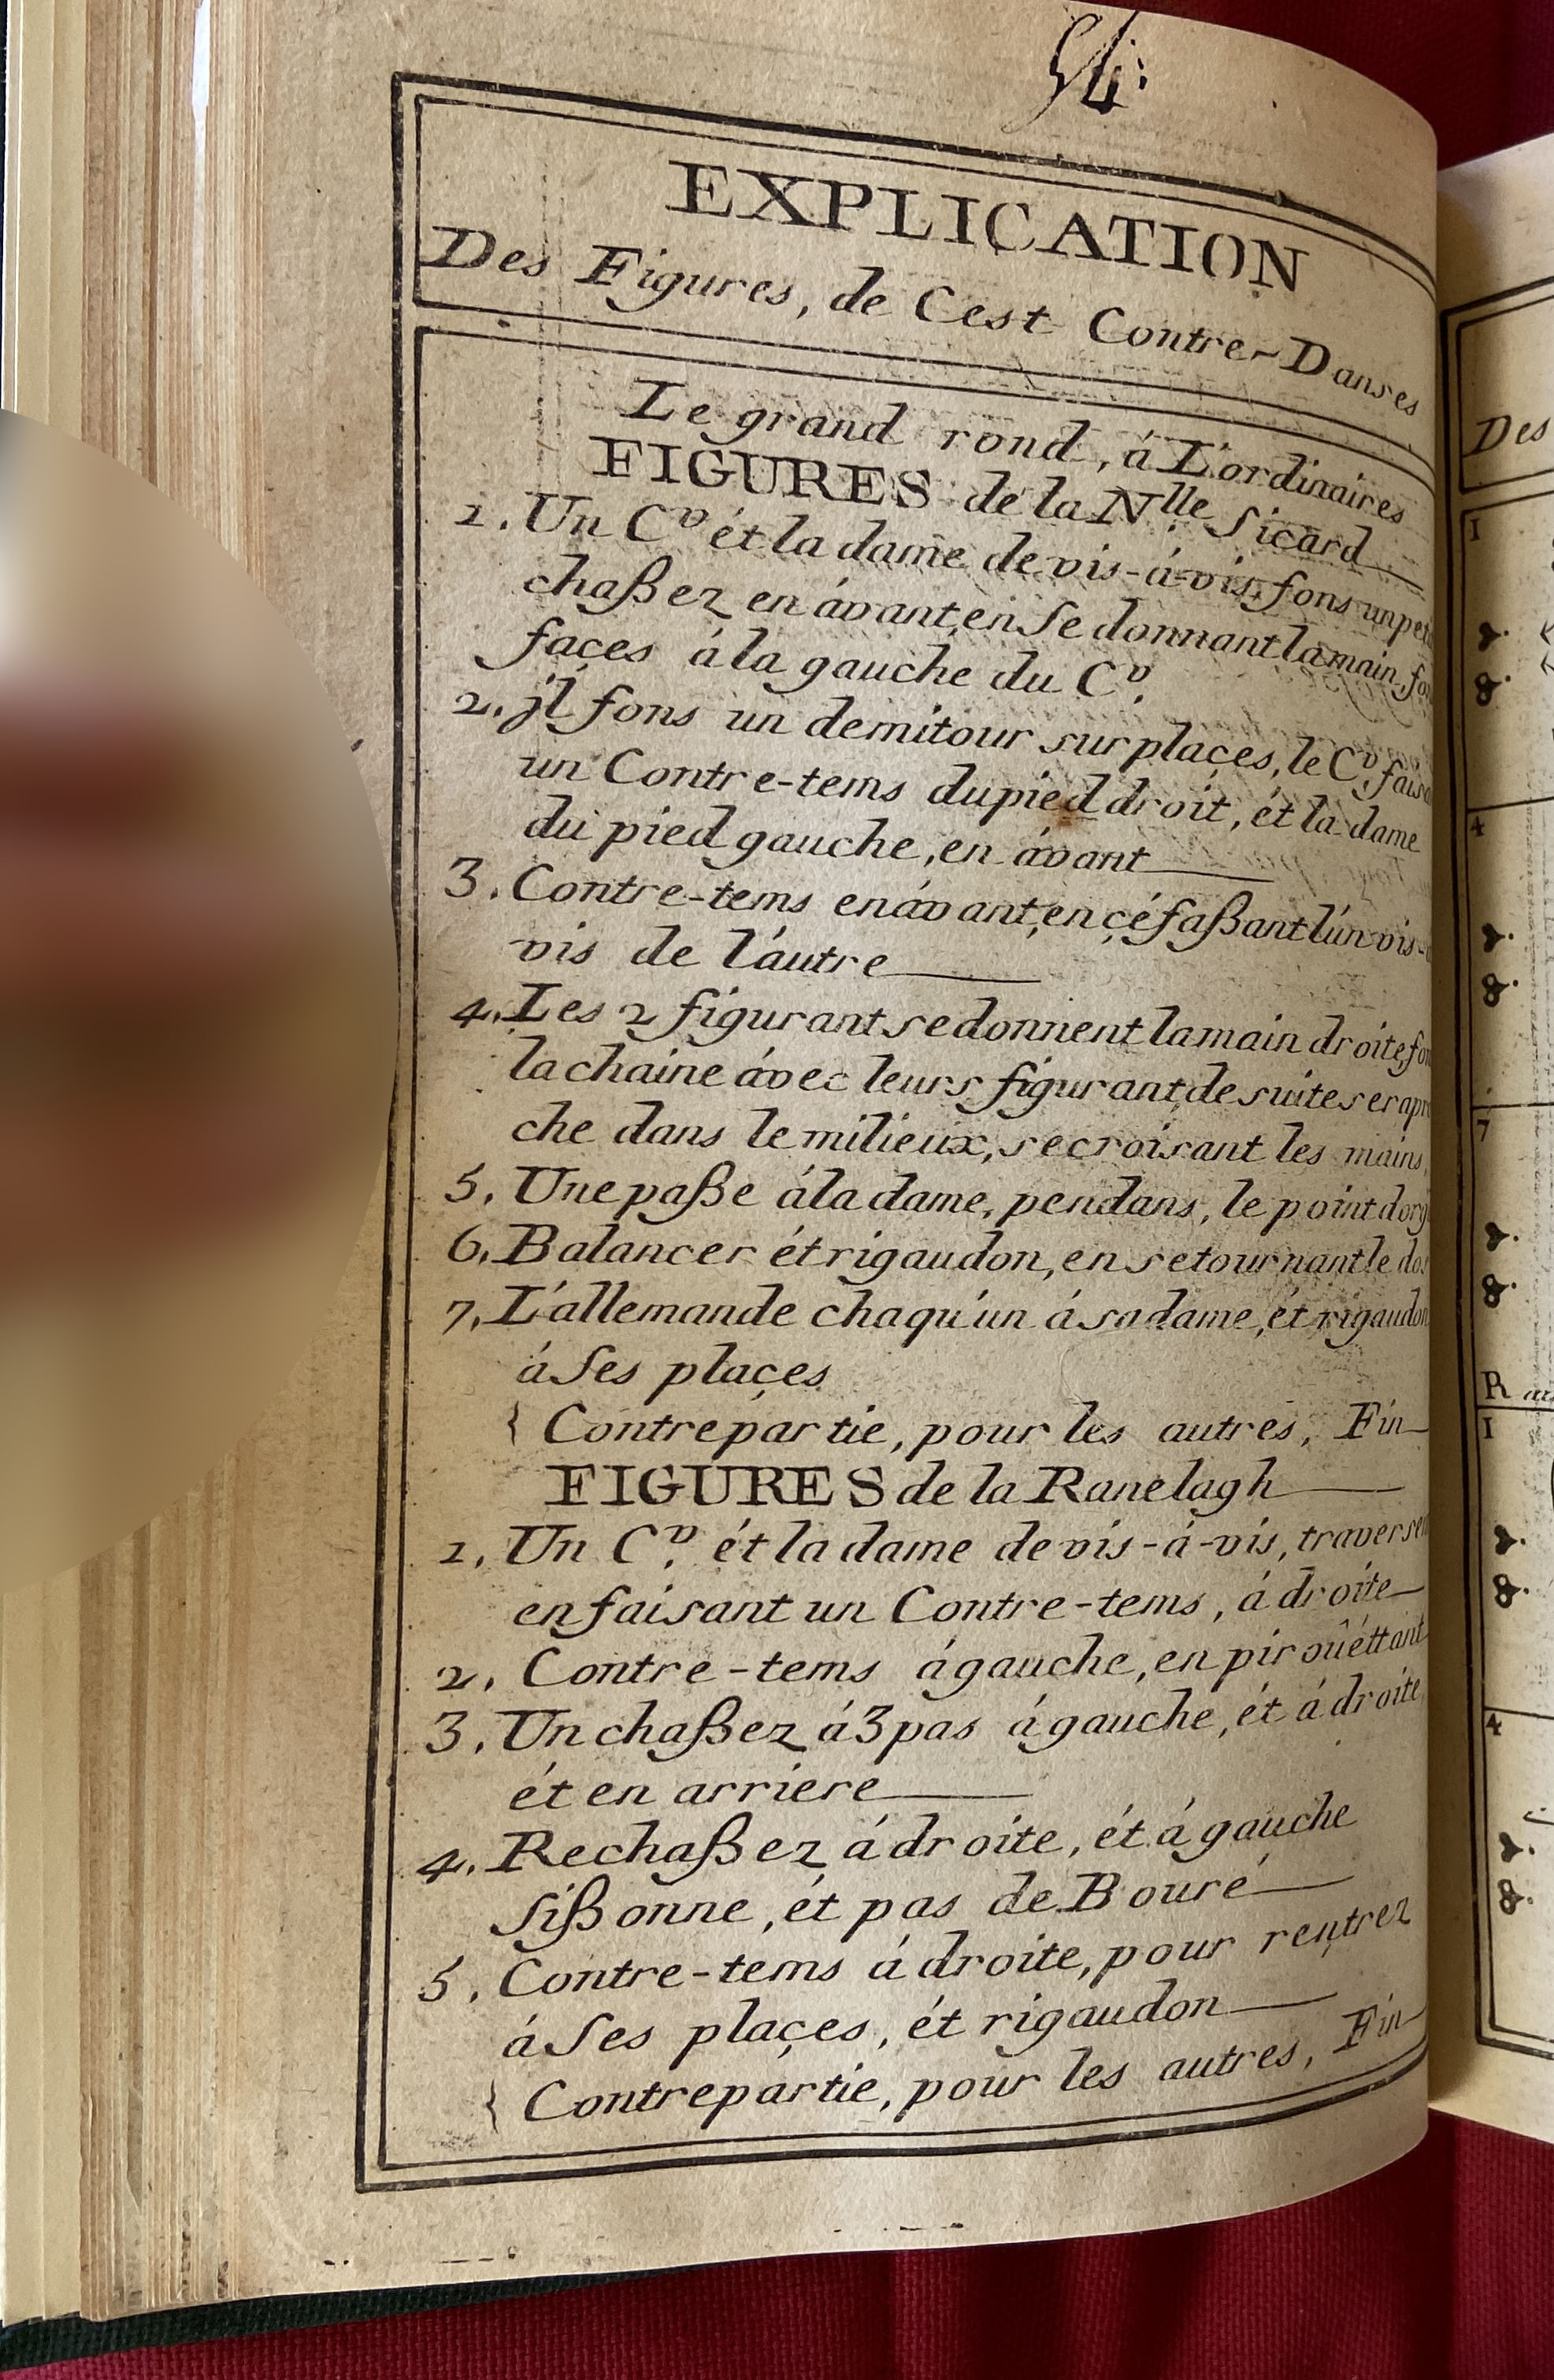 54:
EXPLICATION
Des Figures, de Cest Contre-Danses
Le grand rond, á L'ordinaires
FIGURES de la Nlle Sicard
1. Un Cv ét la dame de vis-á-vis, fons un
chaßez en ávant, en Se donnant la main,
façes á la gauche du Cv.
2. jl fons un demi tour sur plaçes, le Cv.
un Contre-tems du pied droit, ét la dame
du pied gauche, en ávant
3. Contre-tems en ávant, en çéfaßant l'un vis-
vis de l'autre
4. Les 2 figurant se donnent la main droite
la chaine ávec leurs figurant, de suite se
che dans le milieux, se croisant les mains,
5. Une paße á la dame, pendans, le point
6. Balancer ét rigaudon, en se tournant le
7. L'allemande chaqu'un á sa dame, ét rigaudon
á Ses plaçes
{ Contrepartie, pour les autres, Fin
FIGURES de la Ranelagh
1. Un Cv. ét la dame de vis-á-vis,
en faisant un Contre-tems, á droite
2. Contre-tems á gauche, en piroûéttant
3. Un chaßez á 3 pas á gauche, ét á droite
ét en arriere
4. Rechaßez á droite, ét á gauche
Sißonne, ét pas de Bouré
5. Contre-tems á droite, pour rentrez
á Ses plaçes, ét rigaudon
{ Contrepartie, pour les autres, Fin
Des
1
4
7
R
1
4